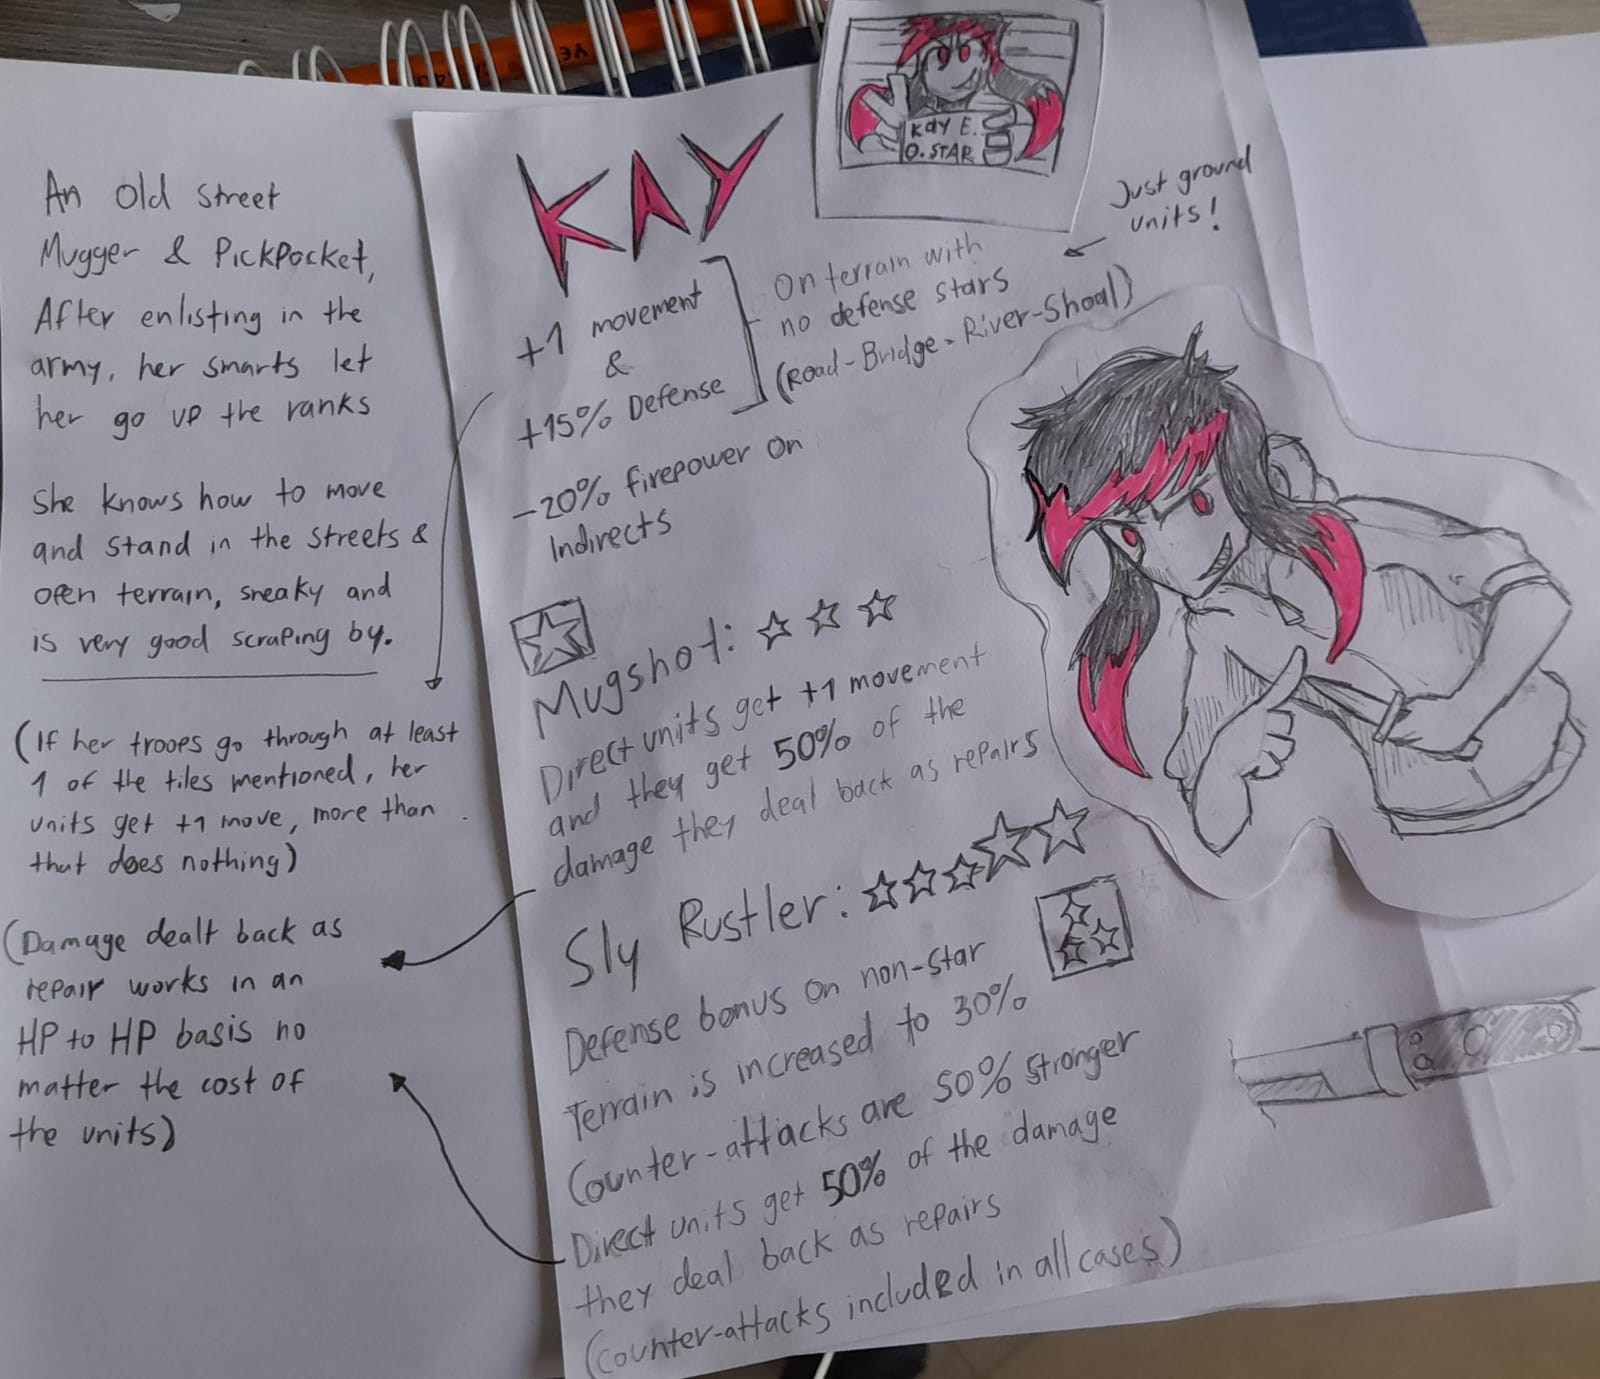 An Old Street
Mugger & PickPocket,
After enlisting in the
army, her smarts let
her go up the ranks
She knows how to move
and stand in the streets &
open terrain, sneaky and
is very good scraping by.
(If her troops go through at least
1 of the tiles mentioned, her
units get +1 move, more than
that does nothing)
(Damage dealt back as
repair works in an
HP to HP basis no
matter the cost of
the units)
KAY
KAY E.
O.STAR
Just ground
units!
+1 movement
&
+15% Defense
On terrain with
no defense stars
(Road-Bridge-River-Shoal)
-20% firepower on
Indirects
Mugshot:
Direct units get +1 movement
and they get 50% of the
damage they deal back as repairs
Sly Rustler:
Defense bonus on non-star
Terrain is increased to 30%
Counter-attacks are 50% stronger
Direct units get 50% of the damage
they deal back as repairs
(counter-attacks included in all cases)